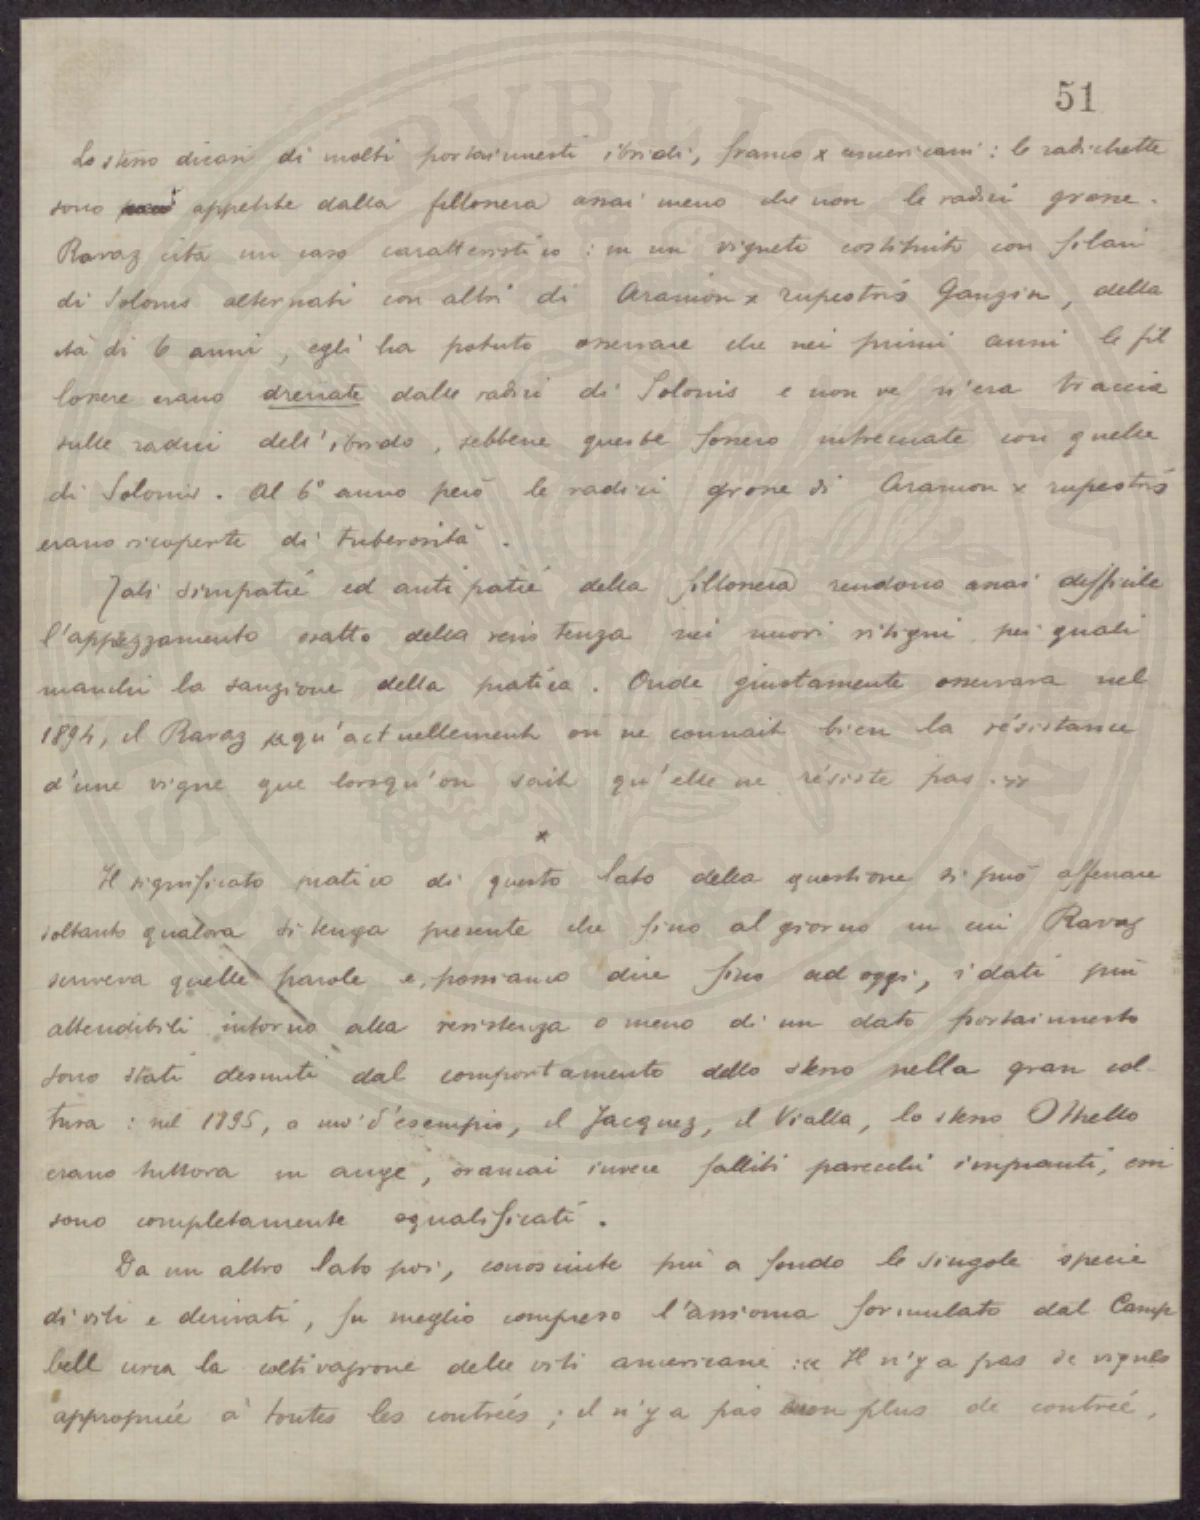 51
Lo stesso dicasi di molti portainnesti ibridi, franco x americani: le radichette
sono appetite dalla fillossera assai meno che non le radici grosse.
Ravaz cita un caso caratteristico: in un vigneto costituito con filari
di Solonis alternati con altri di Aramon x rupestris Ganzin, della
età di 6 anni, egli ha potuto osservare che nei primi anni le fil
lossere erano dalle radici di Solonis e non ve n'era traccia
sulle radici dell'ibrido, sebbene queste fossero intrecciate con quelle
di Solonis. Al 6° anno però le radici grosse di Aramon x rupestris
erano ricoperte di tuberosità.
Tali simpatie ed antipatie della fillossera rendono assai difficile
l'apprezzamento esatto della resistenza nei nuovi vitigni pei quali
manchi la sanzione della pratica. Onde giustamente osservava nel
1894, il Ravaz «qu'actuellement on ne connait bien la résistance
d'une vigne que lorsqu'on sait qu'elle ne résiste pas.»
*
Il significato pratico di questo lato della questione si può afferrare
soltanto qualora si tenga presente che fino al giorno in cui Ravaz
scriveva quelle parole e, possiamo dire fino ad oggi, i dati più
attendibili intorno alla resistenza o meno di un dato portainnesto
sono stati desunti dal comportamento dello stesso nella gran col-
tura: nel 1895, a mo' d'esempio, il Jacquez, il Vialla, lo stesso Othello
erano tuttora in auge, oramai invece falliti parecchi impianti, essi
sono completamente squalificati.
Da un altro lato poi, conosciute più a fondo le singole specie
di viti e derivati, fu meglio compreso l'assioma formulato dal Camp
bell circa la coltivazione delle viti americane: « Il n'y a pas de vignes
appropriée à toutes les contrées; il n'y a pas non plus de contrée,
PVBLI